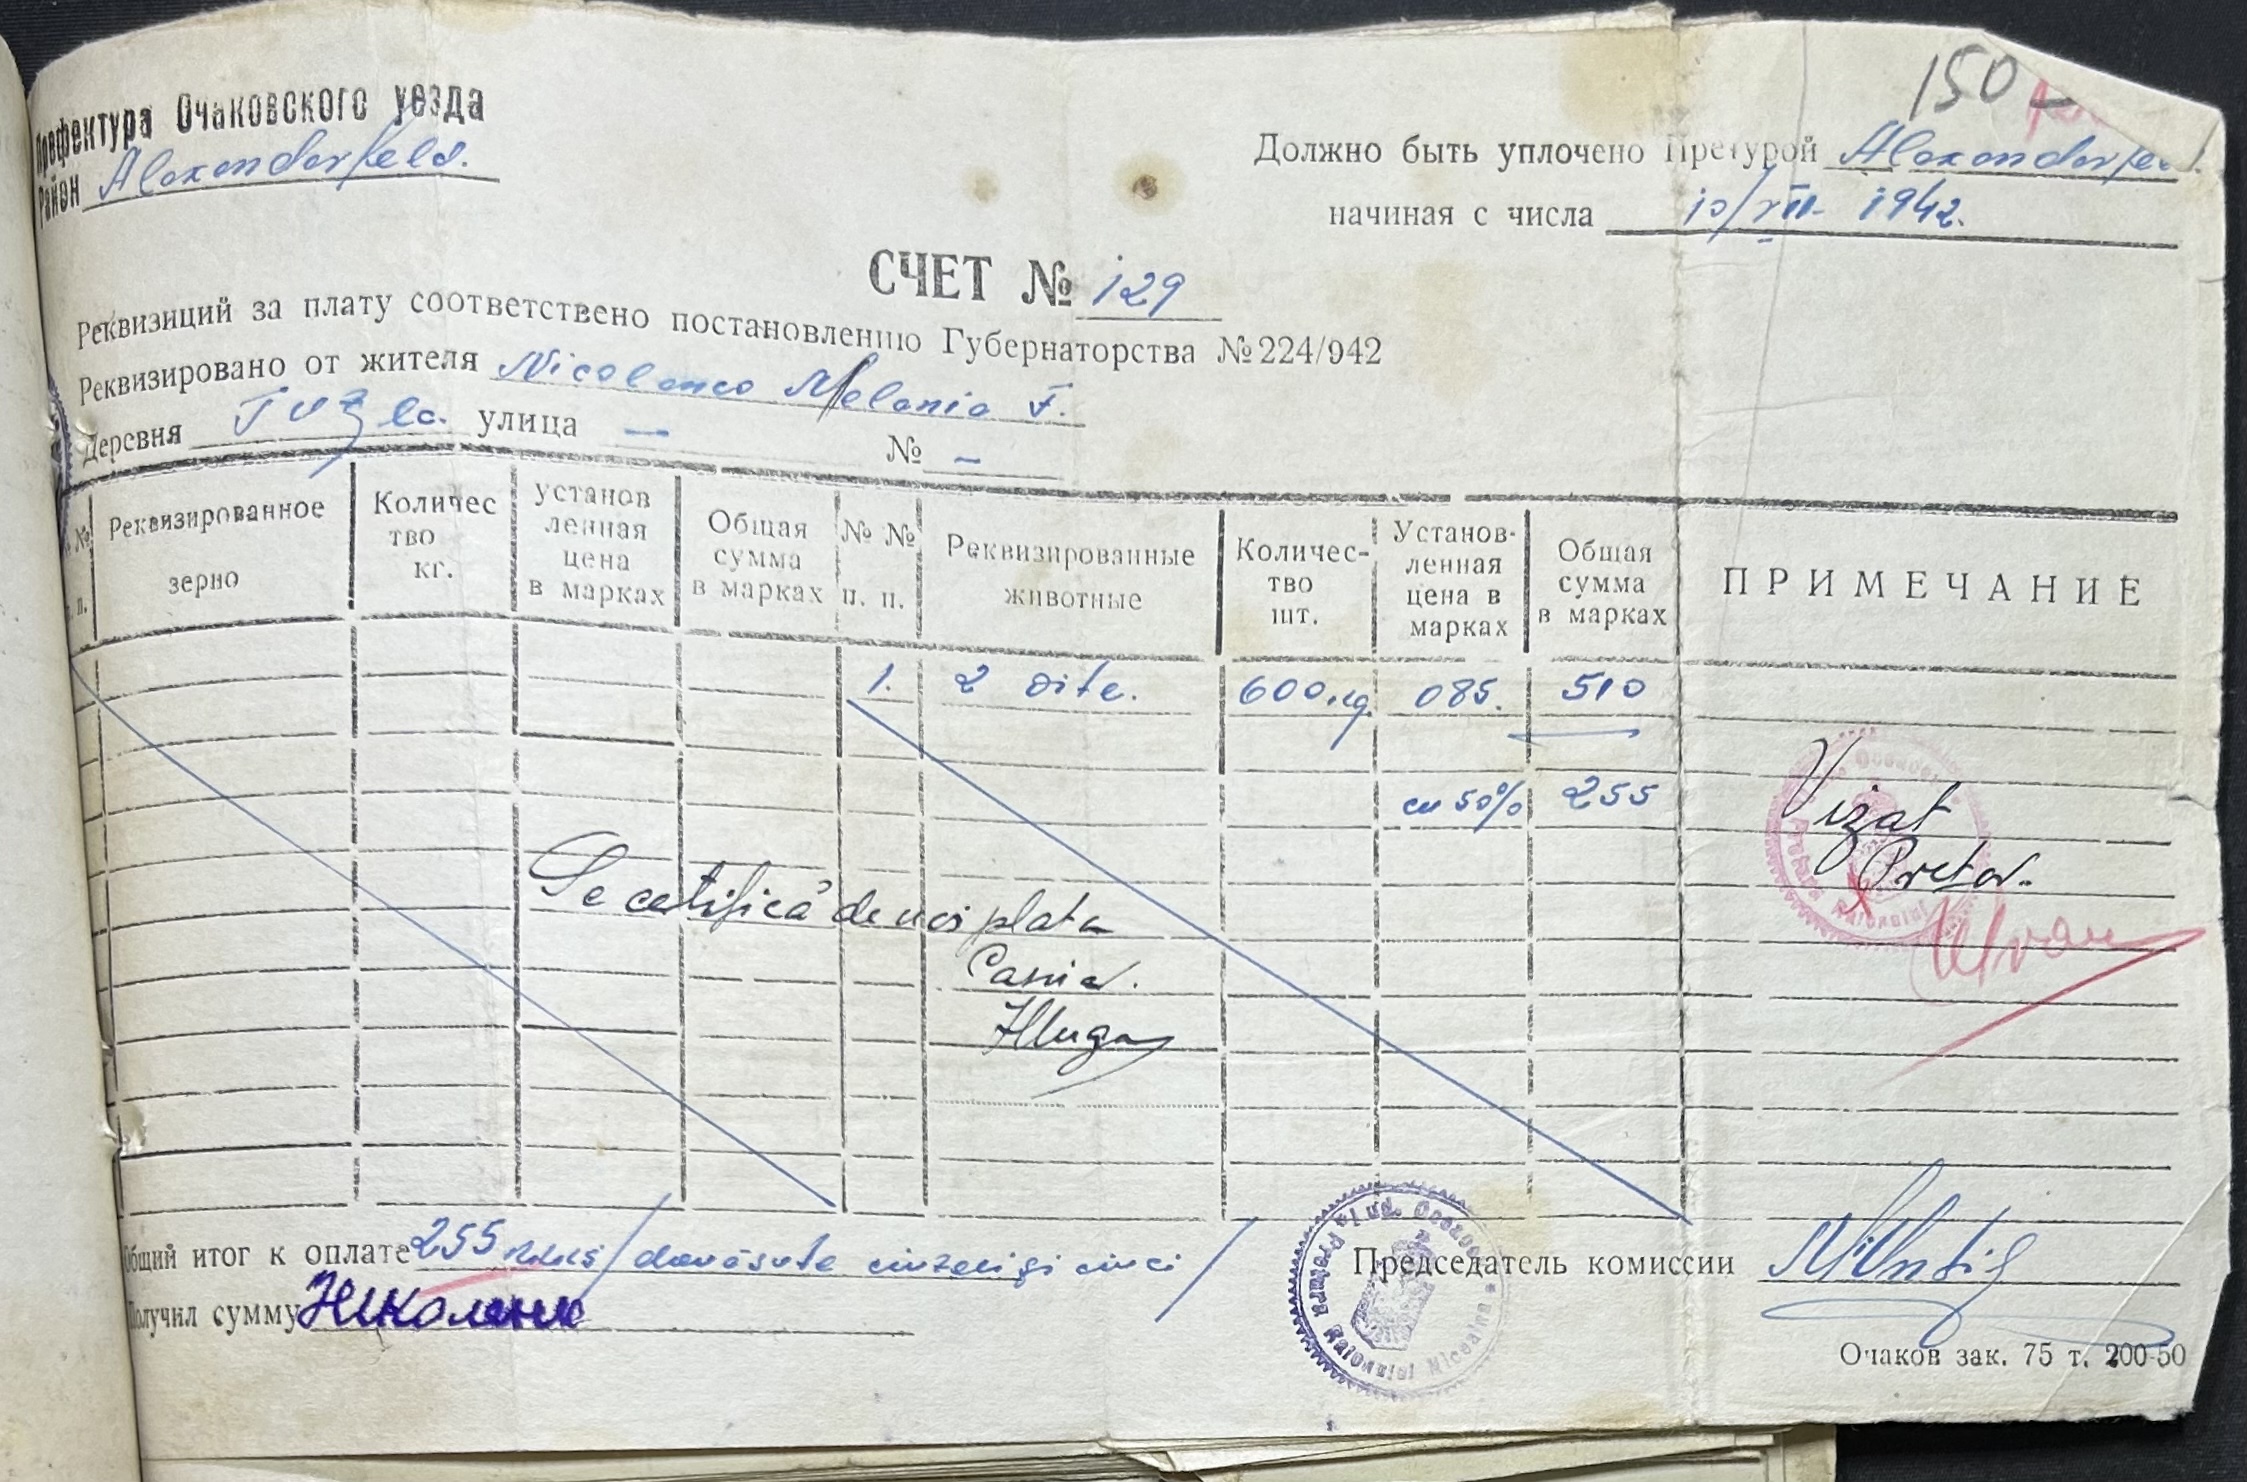 150
Префектура Очаковского уезда
Район Alexanderfeld.
Должно быть уплочено Претурой Alexanderfeld.
начиная с числа 10/VII- 1942.
СЧЕТ № 129
Реквизиций за плату соответствено постановлению Губернаторства №224/942
Реквизировано от жителя Nicolenco Melania F.
Деревня Tuzla. улица — № —
№ п. Реквизированное зерно Количес тво кг. установ ленная цена в марках Общая сумма в марках № № п. п. Реквизированные животные Количес- тво шт. Установ- ленная цена в марках Общая сумма в марках ПРИМЕЧАНИЕ
1. 2 vite. 600.kg. 085. 510
cu 50% 255
Vizat
Pretor.
Se certifică de noi plata
Casier.
Общий итог к оплате 255 / douăsute cinzeci și cinci /
Председатель комиссии
Получил сумму Николенко
Pretura Raionului
Очаков зак. 75 т. 200-50